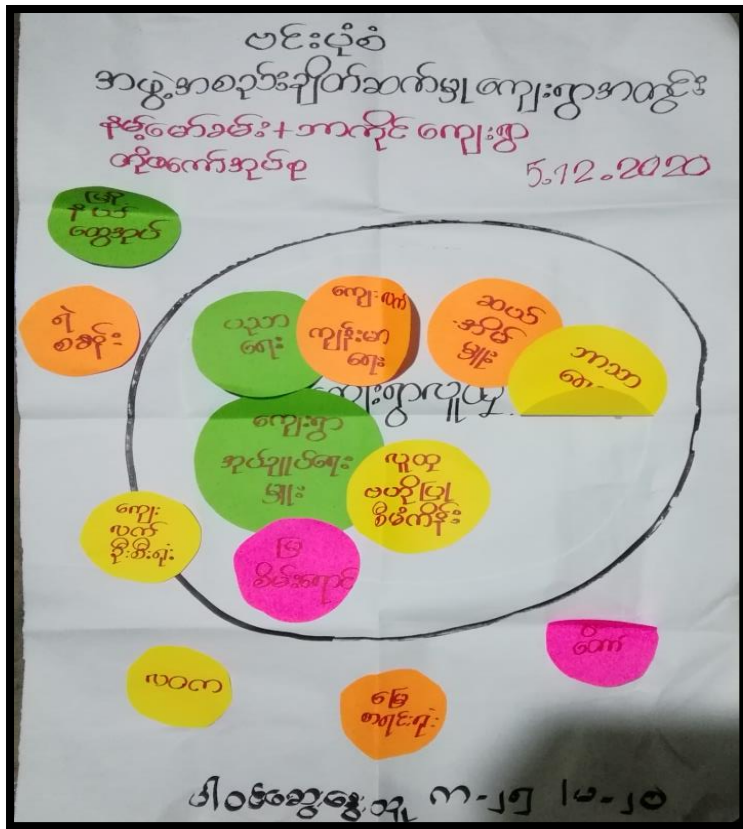 ဗင်းပုံစံ
အဖွဲ့အစည်းချိတ်ဆက်မှု ကျေးရွာအတွင်း
နမ့်မော်ခမ်း + ဘာကိုင် ကျေးရွာ
အုပ်စု
5.12.2020
မြို့
နယ်
ထွေအုပ်
ရဲ
စခန်း
ပညာ
ရေး
ကျေးလက်
ကျန်းမာ
ရေး
ဆယ်
အိမ်
မှူး
ဘာသာ
ရေး
ကျေးရွာလူထု
ကျေးရွာ
အုပ်ချုပ်ရေး
မှူး
လူထု
ဗဟိုပြု
စီမံကိန်း
ကျေး
လက်
ဦးစီးရုံး
မြ
စိမ်းရောင်
လဝက
မြေ
စာရင်းရုံး
ပါဝင်ဆွေးနွေးသူ က-၂၅ ၊ မ-၂၀